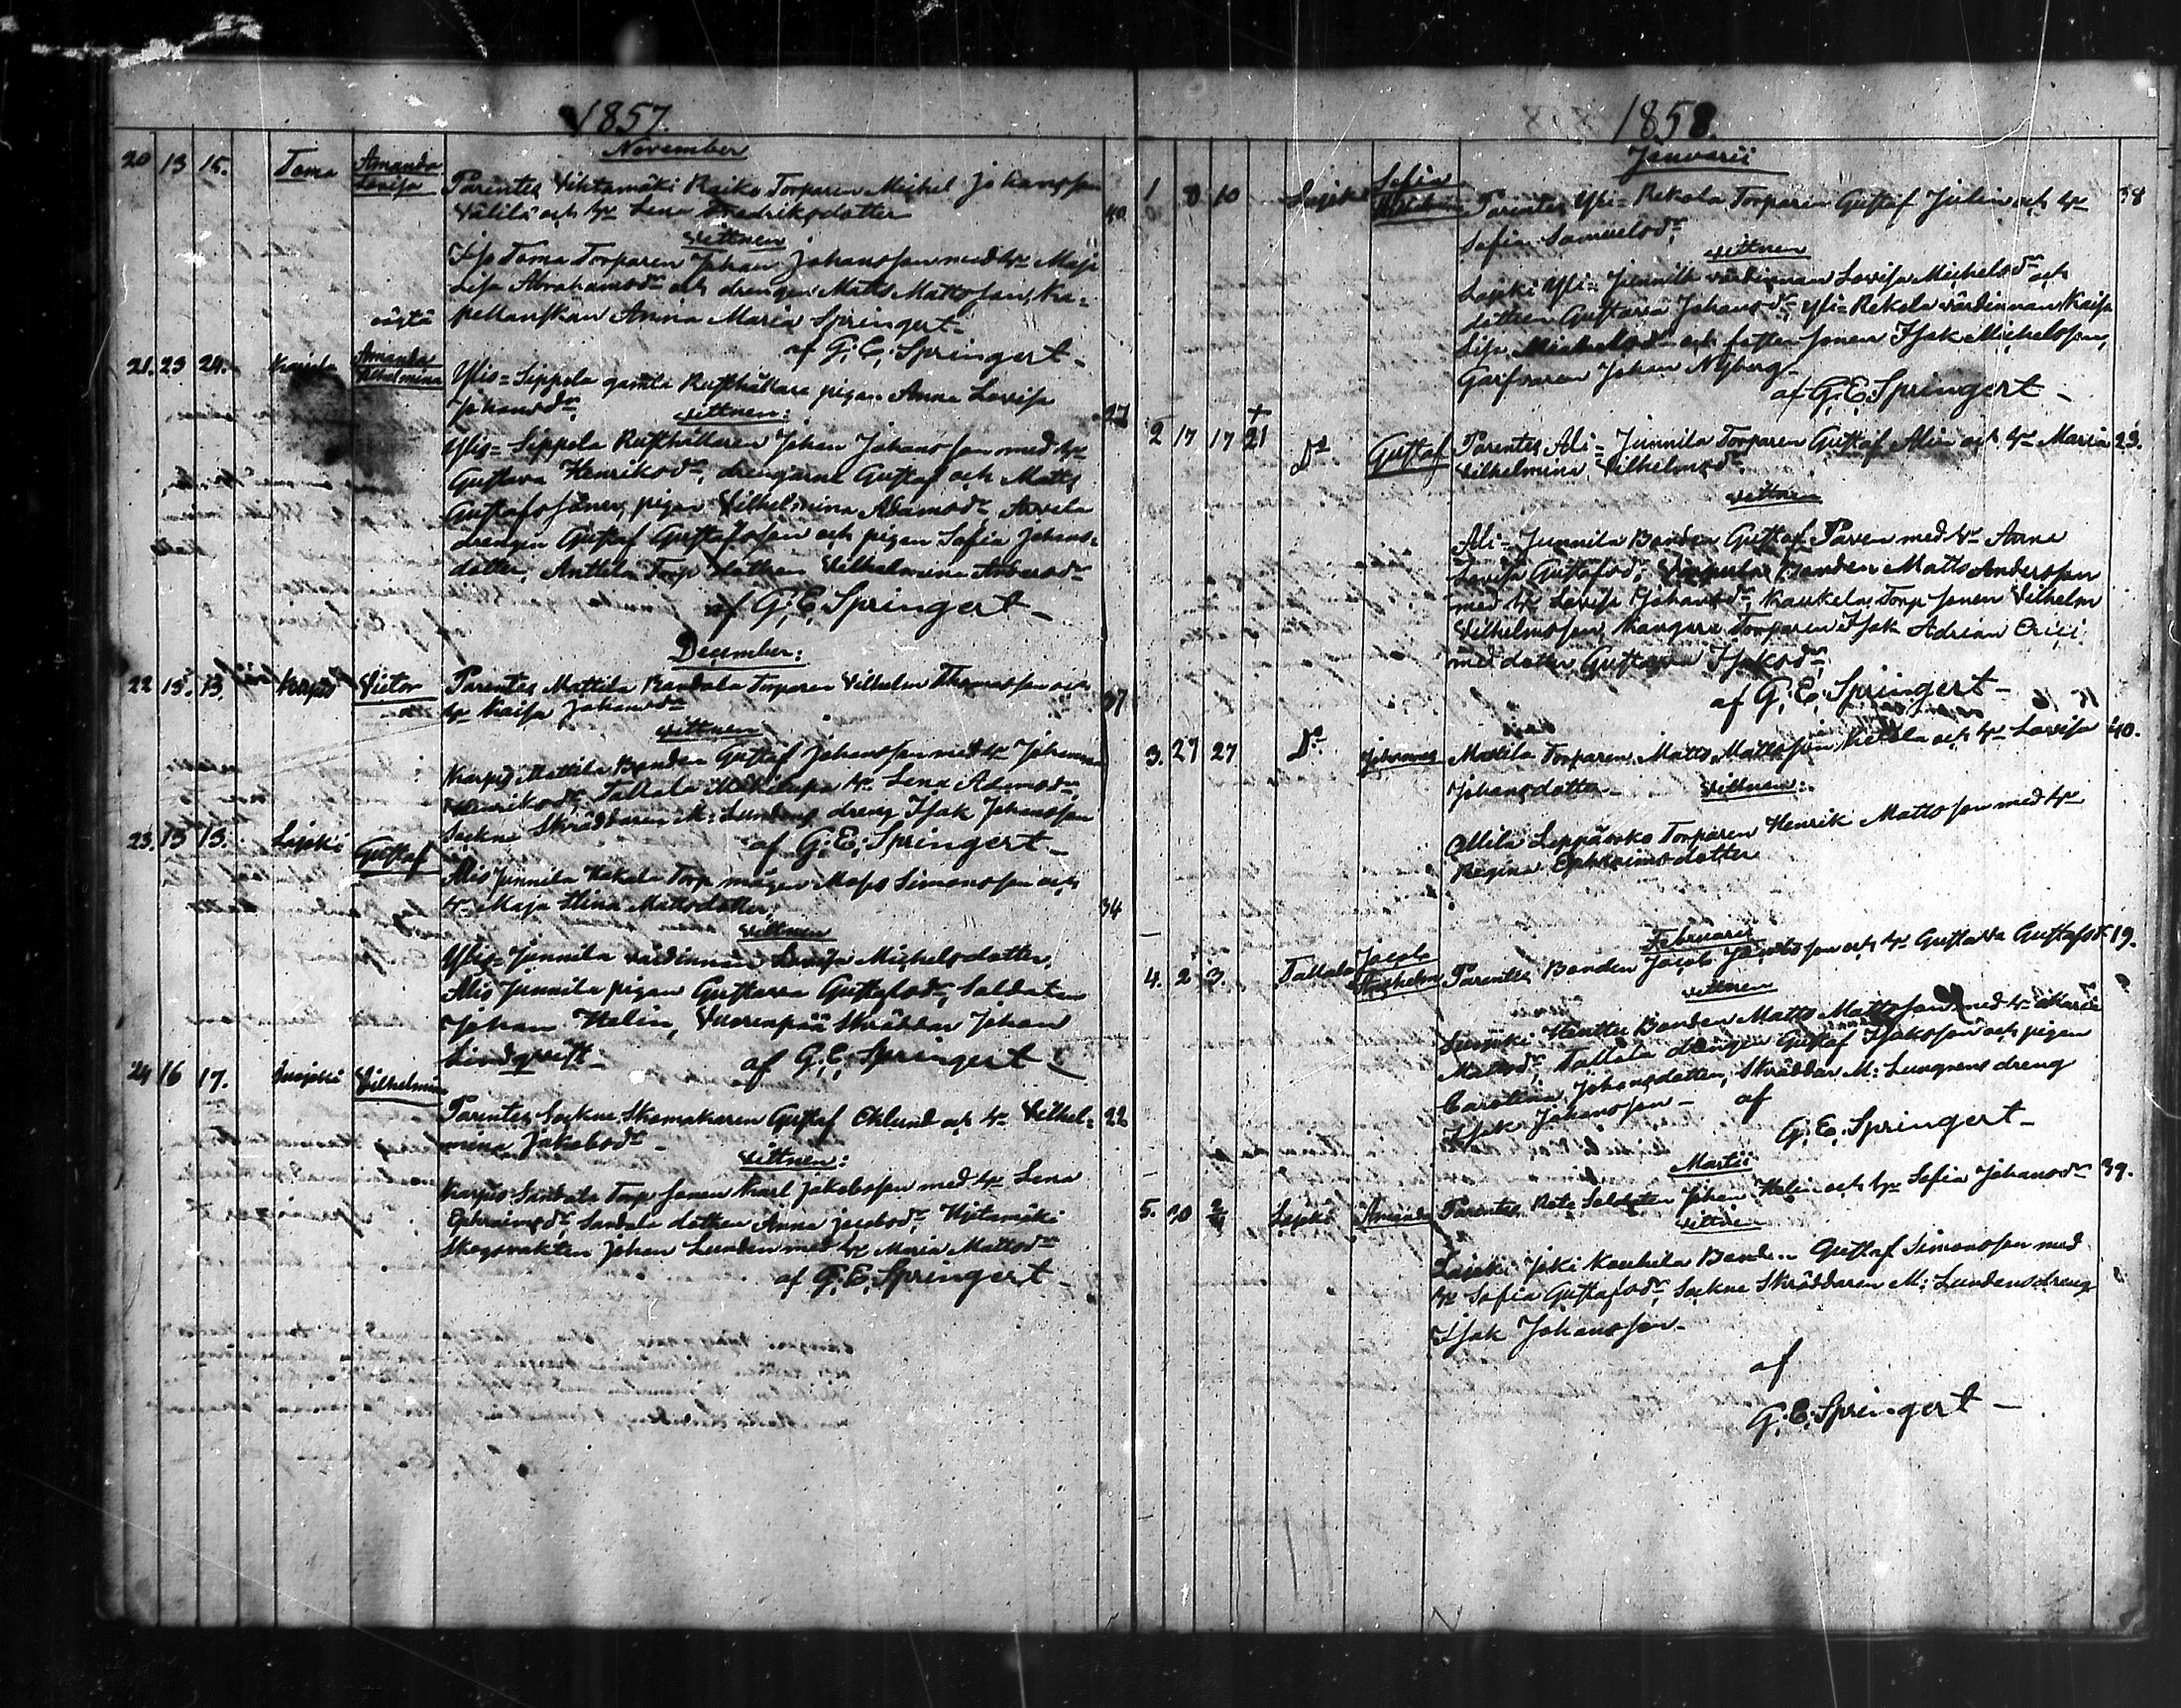 1857.
November
20 13 15. Toma Amanda Lovisa
Parentes Vihtamäki Raiko Torparen Michel Johansson
Välilä och hr Lena Fredriksdotter 40
Vittnen
Iso Toma Torparen Johan Johansson med hr Maja
Lisa Abrahamsdr och drengen Matts Mattsson, Ka=
pellanskan Anna Maria Springert
af G. E. Springert
21. 23 24. Amanda Vilhelmina
Ylis=Seppela gamla Rusthållare pigan Anna Lovisa
Johansdr 27
Vittnen:
Ylis=Seppela Rusthållaren Johan Johansson med hr
Gustava Henriksdr, drengarne Gustaf och Matts
Gustafssöner, pigan Vilhelmina Adamsdr Arvela
drengen Gustaf Gustafsson och pigan Sofia Johans=
dotter, Anttila Torp dottren Vilhelmina Andersdr
af G. E. Springert
December:
22 13. 13. Karjus Victor
Parentes Mattila Randala Torparen Vilhelm Thomasson och
hr Kaisa Johansdr 37
Vittnen
Karjus Mattila Bonden Gustaf Johansson med hr Johanna
Henriksdr, Tallala hr Lena Adamsdr
Sockne Skräddaren M: Lundens dreng Isak Johansson
af G. E. Springert
23. 13 13. Lajoki Gustaf
Alis Junnila Kakala Torp mågen Maps Simonsson och
hr Maja Stina Mattsdotter 34
Vittnen
Ylis=Junnila värdinnan Lovisa Michelsdotter,
Alis Junnila pigan Gustava Gustafsdr, Soldaten
Johan Helin, Vuorenpää Skräddar Johan
Lindqvist
af G. E. Springert
24 16 17. Suojoki Vilhelmina
Parentes Sockne Skomakaren Gustaf Eklund och hr Vilhel= 22
mina Jakobsdr
Vittnen:
Karjus Sandala Torp sonen Karl Jakobsson med hr Lena
Ephraimsdr, Sandala dottren Anna Jacobsdr, Hjitamäki
Skogsvakten Johan Lunden med hr Maria Mattsdr
af G. E. Springert
1858.
Januarii
1 8 10 Lajoki Sofia
Parentes Yli=Rekola Torparen Gustaf Julin och hr 38
Sofia Samuelsdr
Vittnen
Lajoki Yli=Junnila värdinnan Lovisa Michelsdr och
dottren Gustava Johansdr, Yli=Rekola värdinnan Kaisa
Lisa Michelsdr och fosters sonen Isak Michelsson,
Garfvaren Johan Nyberg
af G. E. Springert
2 17 17 + 21 Do Gustaf
Parentes Ali=Junnila Torparen Gustaf Alin och hr Maria 23.
Vilhelmina Vilhelmsdr
Vittnen
Ali=Junnila Bonden Gustaf Paven med hr Anna
Lovisa Gustafsdr, Bonden Matts Andersson
med hr Lovisa Johansdr, Kaukela Torp sonen Vilhelm
Vilhelmsson, Kangare Torparen Isak Adrian Erici
med dotter Gustava Isaksdr
af G. E. Springert
3. 27 27 Do Johannes
Mattila Torparen Matts Mattsson Ketola och hr Lovisa 40.
Johansdotter
Vittnen:
Torparen Henrik Mattsson med hr
Regina Ephraimsdotter
Februarii
4. 2 3. Tallala Jacob
Parentes Bonden Jacob Jacobsson och hr Gustava Gustafsdr 19.
Vittnen
Bonden Matts Mattsson med hr Maria
Mattsdr, Tallala drengen Gustaf Isaksson och pigan
Carolina Johansdotter, Skräddar M: Lungrens dreng
Isak Johansson
af
G. E. Springert
Martii
5. 30 2/4 Lajoki Amanda
Parentes Rote Soldaten Johan Helin och hr Sofia Johansdr 39.
Vittnen
Lajoki Joki Kouhila Bonden Gustaf Simonsson med
hr Sofia Gustafsdr, Sockne Skräddaren M: Lundens dreng
Isak Johansson
af
G. E. Springert